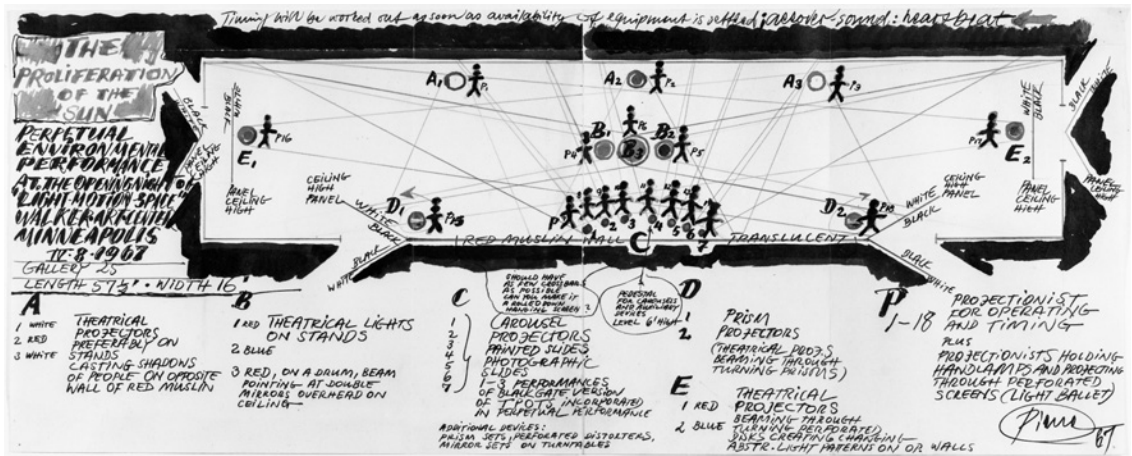 Timing will be worked out as soon as availability of equipment is settled; allover-sound: heartbeat
THE
PROLIFERATION
OF THE
SUN
PERPETUAL
ENVIRONMENTAL
PERFORMANCE
AT THE OPENING NIGHT OF
"LIGHT-MOTION SPACE"
WALKER ART CENTER
MINNEAPOLIS
IV·8·1967
GALLERY 2S
LENGTH 57½' · WIDTH 16'
BLACK
WHITE
PANEL CEILING HIGH
BLACK
WHITE
A1
P1
A2
P2
A3
P3
WHITE
BLACK
BLACK
WHITE
E1
P16
P4
B1
P6
B3
B2
P5
P17
E2
PANEL
CEILING
HIGH
CEILING
HIGH
PANEL
CEILING
HIGH
PANEL
PANEL
CEILING
HIGH
PANEL
CEILING
HIGH
WHITE
BLACK
D1
P
1 2 3 4 5 6 7
D2
P18
WHITE
BLACK
RED MUSLIN WALL
C
TRANSLUCENT
WHITE
BLACK
BLACK
WHITE
SHOULD HAVE
AS FEW CROSSBARS
AS POSSIBLE
CAN YOU MAKE IT
A ROLLED DOWN
HANGING SCREEN?
PEDESTAL
FOR CAROUSELS
AND AUXILIARY
DEVICES
LEVEL 6' HIGH
A
1 WHITE
2 RED
3 WHITE
THEATRICAL
PROJECTORS
PREFERABLY ON
STANDS
CASTING SHADOWS
OF PEOPLE ON OPPOSITE
WALL OF RED MUSLIN
B
1 RED THEATRICAL LIGHTS
ON STANDS
2 BLUE
3 RED, ON A DRUM, BEAM
POINTING AT DOUBLE
MIRRORS OVERHEAD ON
CEILING
C
1
2
3
4
5
6
7
CAROUSEL
PROJECTORS
PAINTED SLIDES
PHOTOGRAPHIC
SLIDES
1–3 PERFORMANCES
OF BLACK GATE VERSION
OF TPOTS INCORPORATED
IN PERPETUAL PERFORMANCE
ADDITIONAL DEVICES:
PRISM SETS, PERFORATED DISTORTERS,
MIRROR SETS ON TURNTABLES
D
1
2
PRISM
PROJECTORS
(THEATRICAL PROJ.S
BEAMING THROUGH
TURNING PRISMS)
E
1 RED
2 BLUE
THEATRICAL
PROJECTORS
BEAMING THROUGH
TURNING PERFORATED
DISKS CREATING CHANGING
ABSTR. LIGHT PATTERNS ON OP. WALLS
P
1-18
PROJECTIONIST
FOR OPERATING
AND TIMING
PLUS
PROJECTIONISTS HOLDING
HANDLAMPS AND PROJECTING
THROUGH PERFORATED
SCREENS (LIGHT BALLET)
Piene
67